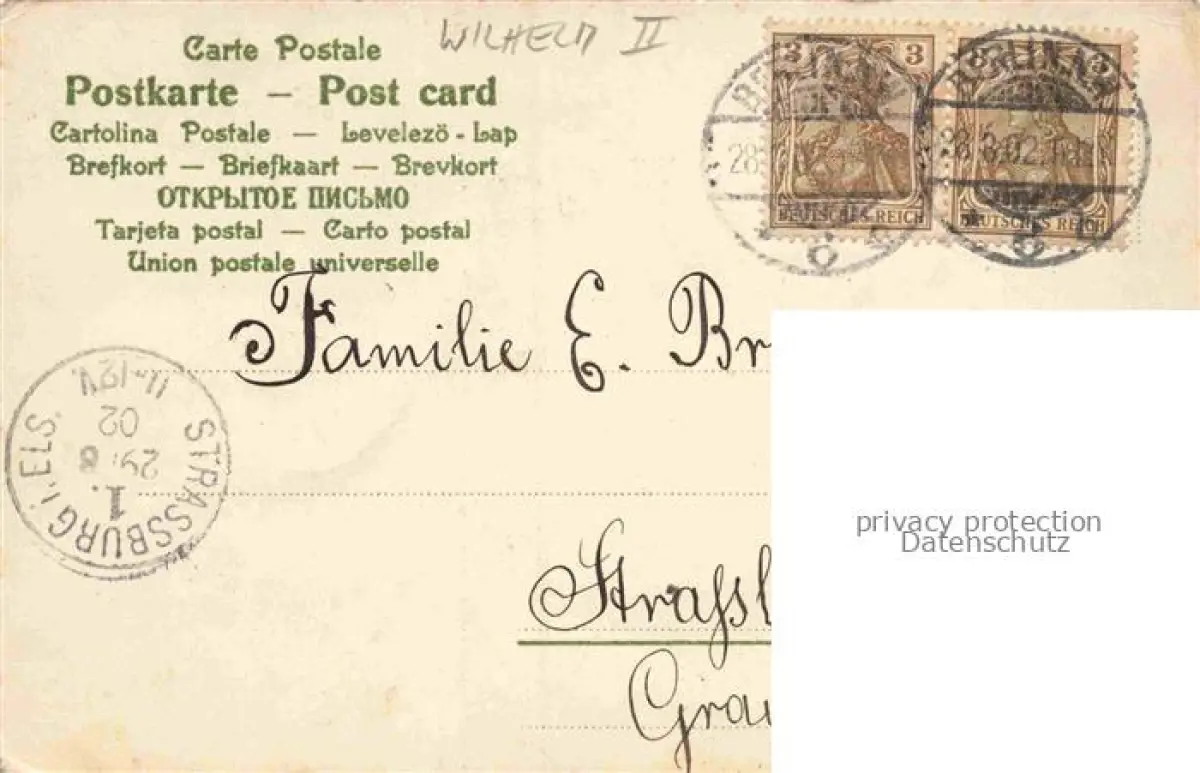 WILHELM II
Carte Postale
Postkarte — Post card
Cartolina Postale — Levelezö-Lap
Brefkort — Briefkaart — Brevkort
ОТКРЫТОЕ ПИСЬМО
Tarjeta postal — Carto postal
Union postale universelle
3 3
DEUTSCHES REICH
3
DEUTSCHES REICH
BERLIN
28
c
BERLIN N
28 8 02
c
Familie E. Br
STRASSBURG i. ELS.
1.
29 8
02
11-12V.
Strassb
Gra
privacy protection
Datenschutz